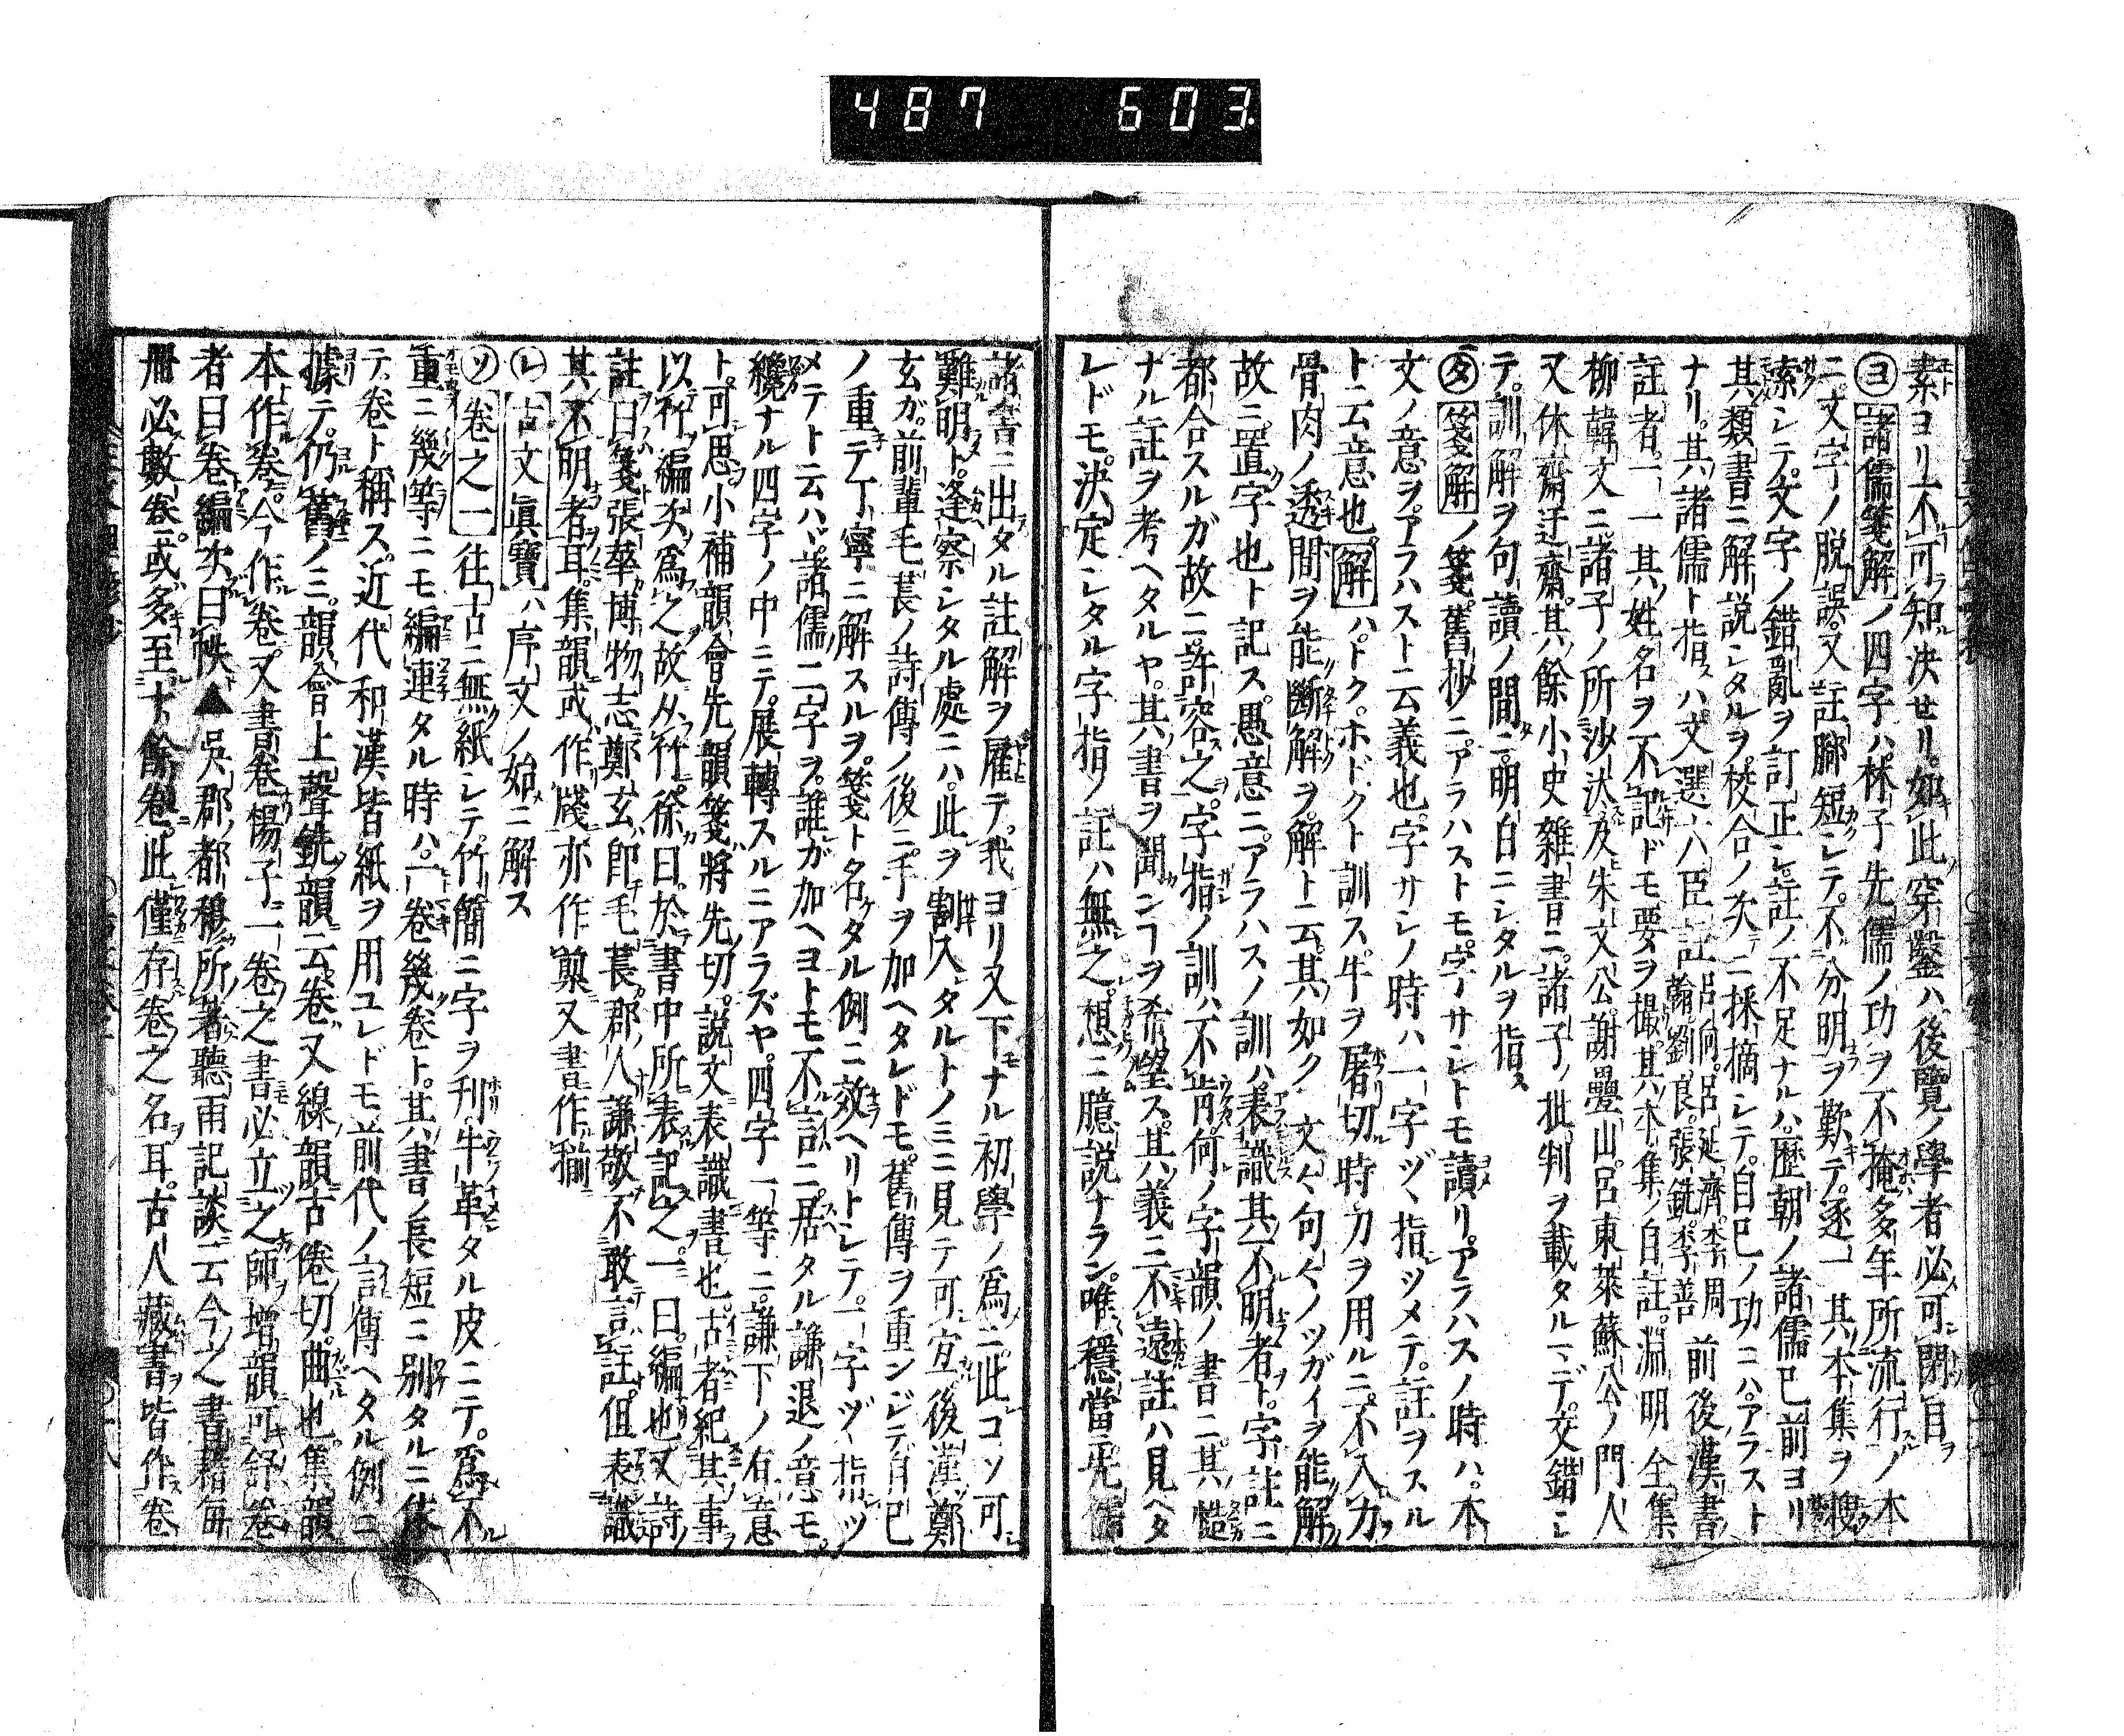 487 603.
素ヨリ上不可知決せリ如此穿鑿ハ後覽ノ學者必可閉目ヲ
㋵諸儒箋解ノ四字ハ林子先儒ノ功ヲ不掩多年所流行ノ本
ニ文字ノ脱誤又註脚短シテ不分明ヲ歎テ逐一其本集ヲ捜
索シテ文字ノ錯亂ヲ訂正シ註ノ不足ナルハ歴朝ノ諸儒已前ヨリ
其類書ニ解説シタルヲ校合ノ次テニ採摘シテ自己ノ功ニハアラスト
ナリ其諸儒ト指スハ文選六臣註呂向呂延濟李周翰劉良張銑李善前後漢書
註者一一其姓名ヲ不記ドモ要ヲ撮其本集ノ自註淵明全集
柳韓文ニ諸子ノ所沙汰及朱文公謝疊山呂東萊蘇公ノ門人
又休齋迂齋其餘小史雜書ニ諸子ノ批判ヲ載タルマデ交錯シ
テ訓解ヲ句讀ノ間ニ明白ニシタルヲ指ス
㋟箋解ノ箋舊抄ニアラハストモ字サシトモ讀リアラハスノ時ハ本
文ノ意ヲアラハスト云義也字サシノ時ハ一字ヅヽ指ツメテ註ヲスル
ト云意也解ハトクホドクト訓ス牛ヲ屠切時力ヲ用ルニ不入力
骨肉ノ透間ヲ能斷解ヲ解ト云其如ク文々句々ノツガイヲ能解
故ニ置字也ト記ス愚意ニアラハスノ訓ハ表識其不明者ト字註ニ
都合スルガ故ニ許容之字指ノ訓ハ不肯何ノ字韻ノ書ニ其慥
ナル註ヲ考ヘタルヤ其書ヲ聞ンヿヲ希望ス其義三不遠註ハ見ヘタ
レドモ決定シタル字指ノ註ハ無之想ニ臆説ナラン唯穩當先儒
諸書ニ出タル註解ヲ雇テ我ヨリ又下ナル初學ノ爲ニ此コソ可
難明ト逢察シタル處ニハ此ヲ割入タルトノミニ見テ可宜後漢鄭
玄ガ前輩毛萇ノ詩傳ノ後ニ手ヲ加ヘタレドモ舊傳ヲ重ンジテ自己
ノ重テ丁寧ニ解スルヲ箋ト名ケタル例ニ效ヘリトシテ一字ヅヽ指ツ
メテト云ハヾ諸儒二字ヲ誰ガ加ヘヨトモ不言ニ居タル謙退ノ意モ
纔ナル四字ノ中ニテ展轉スルニアラズヤ四字一等ニ謙下ノ有意
ト可思小補韻會先韻箋將先切説文表識書也古者紀其事
以竹編次爲之故从竹徐曰於書中所表記之一曰編也又詩
註曰箋張華博物志鄭玄即毛萇郡人謙敬不敢言註但表識
其不明者耳集韻或作牋亦作䉍又書作㨵
㋹古文眞寶ハ序文ノ始ニ解ス
㋞卷之一往古ニ無紙シテ竹簡ニ字ヲ刋牛革タル皮ニテ爲不
重ニ幾等ニモ編連タル時ハ一卷幾卷ト其書ノ長短ニ別タルニ依
テ卷ト稱ス近代和漢皆紙ヲ用ユレドモ前代ノ言傳ヘタル例ニ
據テ仍舊ノミ韻會上聲銑韻云卷又線韻古倦切曲也集韻
本作𢍏今作卷又書卷楊子一卷之書必立之師增韻可舒卷
者曰卷編次曰帙▲呉郡都穆所著聽雨記談云今之書籍毎
冊必數卷或多至十餘卷此僅存卷之名耳古人藏書皆作卷